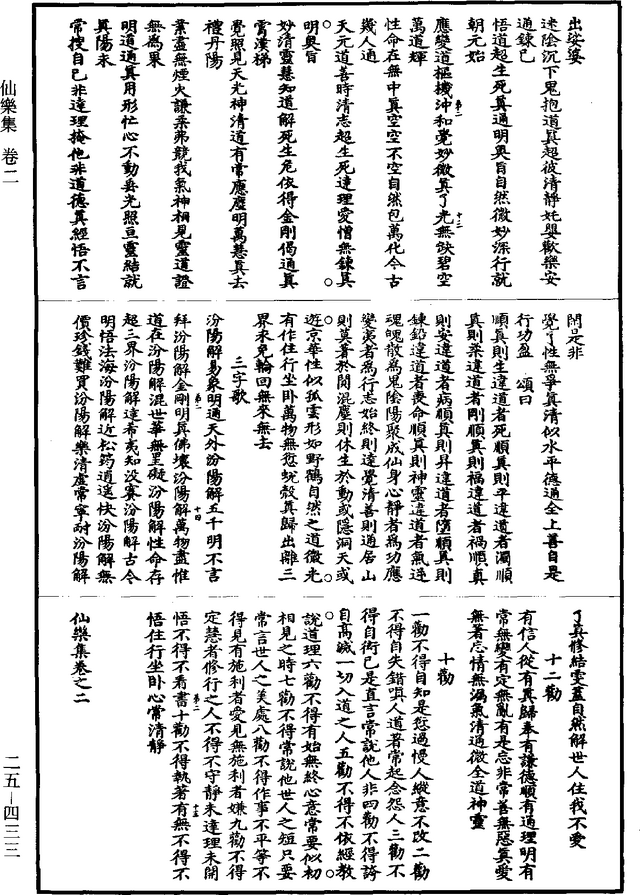 仙樂集 卷二
出娑婆
迷陰沉下鬼抱道真超彼清靜奼嬰歡樂安
過鍊已
悟道超生死真通明奥旨自然微妙深行就
朝元始
應變道樞機沖和覺妙微真了光無缺碧空
萬道輝
性命在無中真空空不空自然包萬化今古
幾人通
天元道善時清志超生死達理愛憎無鍊真
明奥旨
妙清靈慧知道解死生危依得金剛偈通真
霄漢梯
覺照見天光神清道有常應塵明萬慧真去
禮丹陽
業盡無煙火謙柔弗競我氣神相見靈道證
無為果
明道通真用形忙心不動垂光照亘靈結就
真陽汞
常搜自己非達理掩他非道德真經悟不言
閑是非
覺了性無爭真清似水平德通全上善自是
行功盈 頌曰
順真則生違道者死順真則平違道者濁順
真則柔違道者剛順真則福違道者禍順真
則安違道者病順真則昇違道者墮順真則
鍊鉛違道者喪命順真則神靈違道者氣逆
魂魄散為鬼陰陽聚成仙身心靜者為功應
變夷者為行志始終則達覺清善則通居山
則莫著於閑混塵則休生於動或隱洞天或
遊京華性似孤雲形如野鶴自然之道微光
有作住行坐卧萬物無愆蛻殼真歸出離三
界永免輪回無來無去
三字歌
汾陽解易象明通天外汾陽解五千明不言
拜汾陽解金剛明真佛壞汾陽解萬物盡惟
道在汾陽解混世華無罣礙汾陽解性命存
超三界汾陽解達希夷知没賽汾陽解古今
明悟法海汾陽解近松筠逍遥快汾陽解無
價珍錢難買汾陽解樂清虛常寧耐汾陽解
了真修結雲蓋自然解世人住我不愛
十二勸
有信人從有真歸奉有謙德順有通理明有
常無變有定無亂有是忘非常善無惡真愛
無著忘情無漏氣清通微全道神靈
十勸
一勸不得自知是愆過慢人縱意不改二勸
不得自失錯嗔人道著常起念怨人三勸不
得自衒己是直言常說他人非四勸不得誇
自高滅一切入道之人五勸不得不依經教
說道理六勸不得有始無終心意常要似初
相見之時七勸不得常說他世人之短只要
常言世人之美處八勸不得作事不平等不
得見有施利者愛見無施利者嫌九勸不得
定慧者修行之人不得不守靜未達理未閑
悟不得不看書十勸不得執著有無不得不
悟住行坐卧心常清靜
仙樂集卷之二
二五－四三三